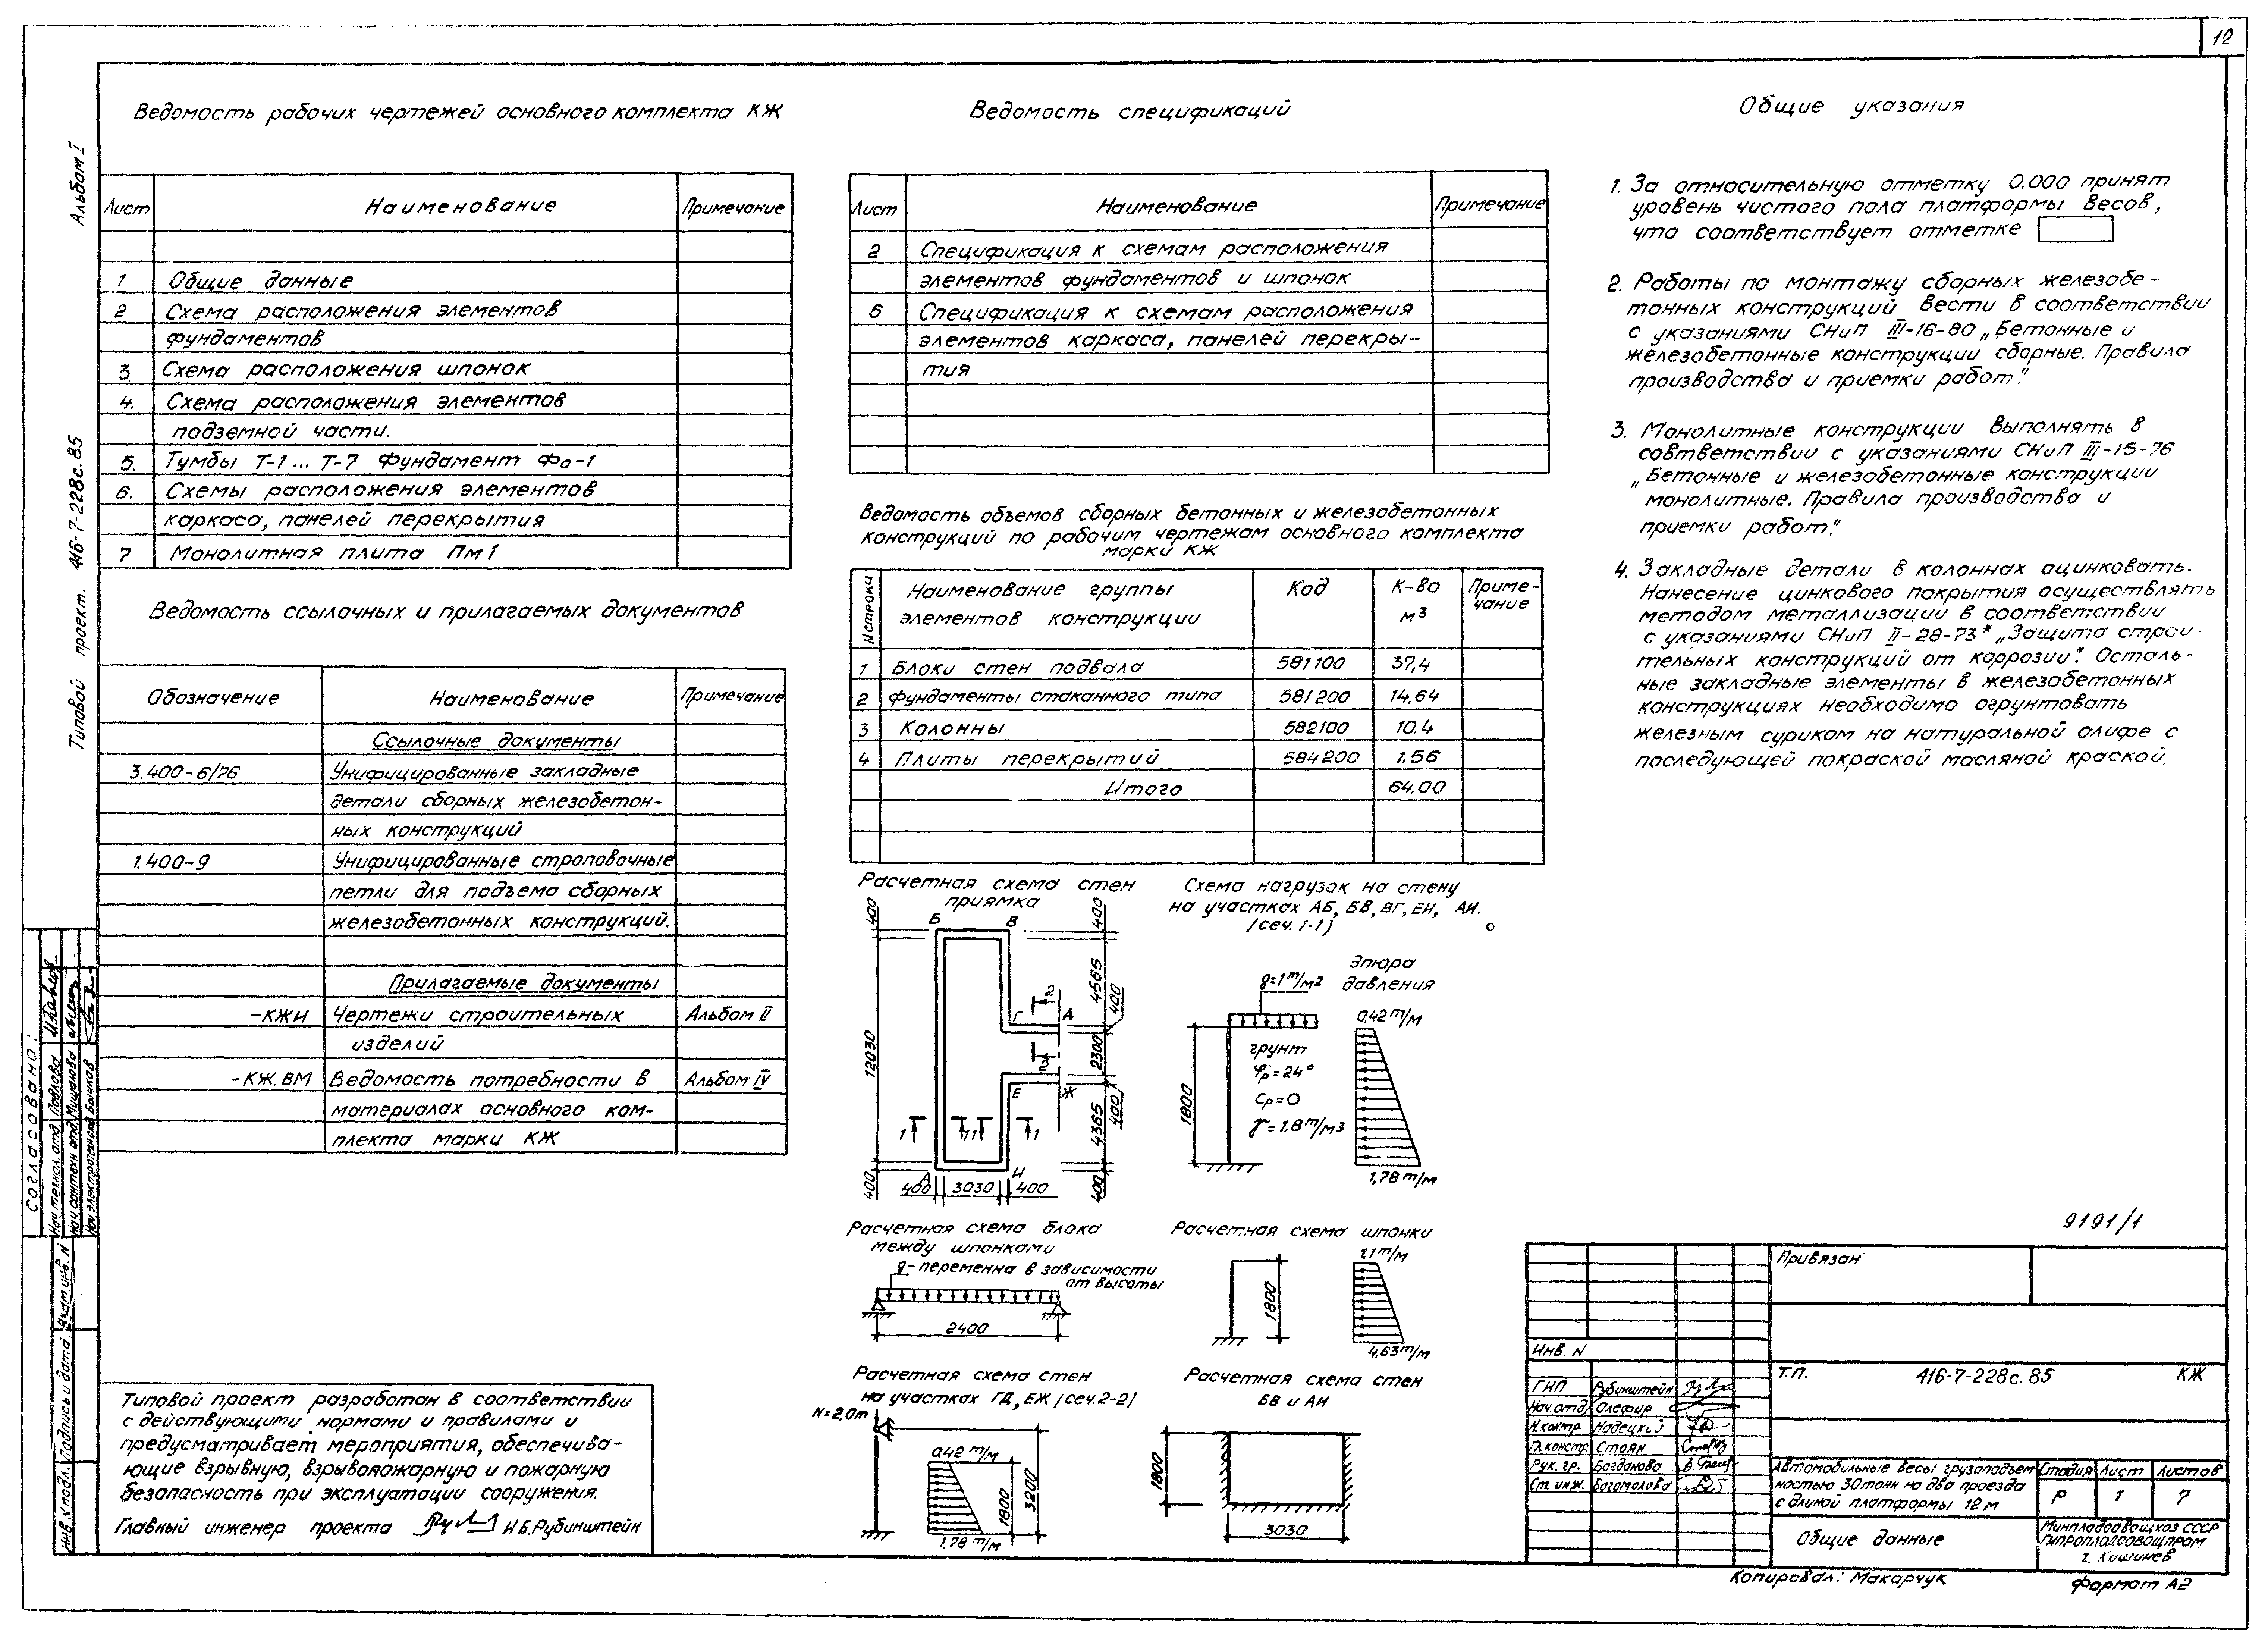 12
Альбом I
Типовой проект. 416-7-228с.85
Ведомость рабочих чертежей основного комплекта КЖ
Лист Наименование Примечание
1 Общие данные
2 Схема расположения элементов
фундаментов
3. Схема расположения шпонок
4. Схема расположения элементов
подземной части.
5. Тумбы Т-1... Т-7 Фундамент Фо-1
6. Схемы расположения элементов
каркаса, панелей перекрытия
7 Монолитная плита Пм1
Ведомость ссылочных и прилагаемых документов
Обозначение Наименование Примечание
Ссылочные документы
3.400-6/76 Унифицированные закладные
детали сборных железобетон-
ных конструкций
1.400-9 Унифицированные строповочные
петли для подъема сборных
железобетонных конструкций.
Прилагаемые документы
-КЖИ Чертежи строительных Альбом II
изделий
-КЖ.ВМ Ведомость потребности в Альбом IV
материалах основного ком-
плекта марки КЖ
Типовой проект разработан в соответствии
с действующими нормами и правилами и
предусматривает мероприятия, обеспечива-
ющие взрывную, взрывопожарную и пожарную
безопасность при эксплуатации сооружения.
Главный инженер проекта И.Б.Рубинштейн
Ведомость спецификаций
Лист Наименование Примечание
2 Спецификация к схемам расположения
элементов фундаментов и шпонок
6 Спецификация к схемам расположения
элементов каркаса, панелей перекры-
тия
Ведомость объемов сборных бетонных и железобетонных
конструкций по рабочим чертежам основного комплекта
марки КЖ
N строки Наименование группы Код К-во Приме-
элементов конструкции м³ чание
1 Блоки стен подвала 581100 37,4
2 Фундаменты стаканного типа 581200 14,64
3 Колонны 582100 10.4
4 Плиты перекрытий 584200 1.56
Итого 64,00
Расчетная схема стен
приямка
Б В
400 400
4565
400
2
Г А
12030 2300
2
Е Ж
400
1 1 1 1
4365
А И
400 400
400 3030 400
Схема нагрузок на стену
на участках АБ, БВ, ВГ, ЕИ, АИ.
/сеч. 1-1)
Эпюра
давления
g=1т/м2
0.42 т/м
грунт
φр=24°
Ср=0
γ=1.8т/м3
1800
1,78 т/м
Расчетная схема блока
между шпонками
g-переменна в зависимости
от высоты
2400
Расчетная схема шпонки
1.1т/м
1800
4,63т/м
Расчетная схема стен
на участках ГД, ЕЖ /сеч.2-2)
N=2,0т
0.42 т/м
1800
3200
1,78 т/м
Расчетная схема стен
БВ и АИ
1800
3030
Общие указания
1. За относительную отметку 0.000 принят
уровень чистого пола платформы весов,
что соответствует отметке
2. Работы по монтажу сборных железобе-
тонных конструкций вести в соответствии
с указаниями СНиП III-16-80 „Бетонные и
железобетонные конструкции сборные. Правила
производства и приемки работ."
3. Монолитные конструкции выполнять в
соответствии с указаниями СНиП III-15-76
„Бетонные и железобетонные конструкции
монолитные. Правила производства и
приемки работ."
4. Закладные детали в колоннах оцинковать.
Нанесение цинкового покрытия осуществлять
методом металлизации в соответствии
с указаниями СНиП II-28-73* „Защита строи-
тельных конструкций от коррозии". Осталь-
ные закладные элементы в железобетонных
конструкциях необходимо огрунтовать
железным суриком на натуральной олифе с
последующей покраской масляной краской.
9191/1
Привязан
Инв. N
Т.П. 416-7-228с.85 КЖ
ГИП Рубинштейн
Нач.отд Олефир
Н.контр Надецкий
Гл.констр Стоян
Рук. гр. Богданова
Ст. инж. Богомолова
Автомобильные весы грузоподъем
ностью 30тонн на два проезда
с длиной платформы 12м
Стадия Лист Листов
Р 1 7
Общие данные
Минплодоовощхоз СССР
Гипроплодоовощпром
г. Кишинев
Копировал: Макарчук Формат А2
Согласовано:
Нач технол.отд Павлова
Нач сантехн отд Мишанова
Нач электротехн Бычков
Инв. N подл. Подпись и дата Взам.инв. N